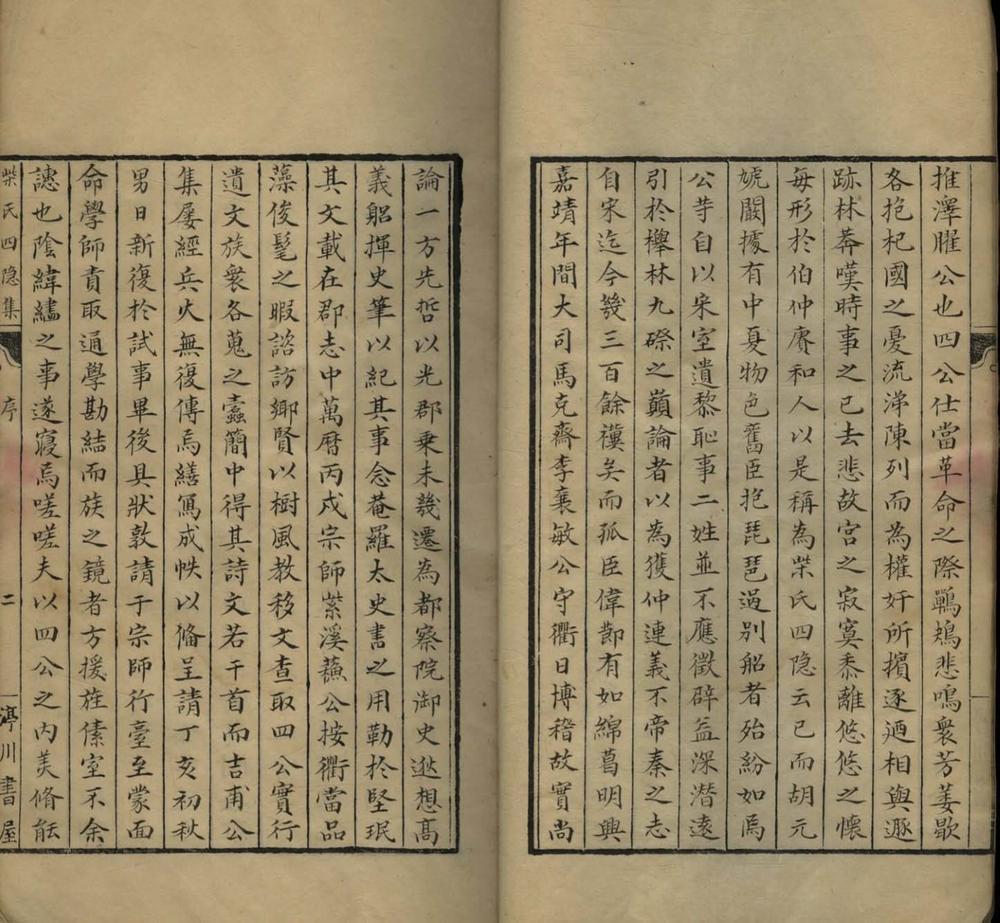 推澤臞公也四公仕當革命之際鵜鴂悲鳴衆芳萎歇
各抱杞國之憂流涕陳列而為權奸所擯逐迺相與遯
跡林莽嘆時事之已去悲故宮之寂寞黍離悠悠之懷
每形於伯仲賡和人以是稱為柴氏四隐云已而胡元
虓闞據有中夏物色舊臣抱琵琶過別船者殆紛如焉
公等自以宋室遺黎恥事二姓並不應徵辟益深潜遠
引於櫸林九磜之巔論者以為獲仲連義不帝秦之志
自宋迄今幾三百餘禩矣而孤臣偉節有如綿葛明興
嘉靖年間大司馬克齋李襄敏公守衢日博稽故實尚
論一方先哲以光郡乗未幾遷為都察院御史逖想高
義躬揮史筆以紀其事念菴羅太史書之用勒於堅珉
其文載在郡志中萬曆丙戌宗師紫溪蘓公按衢當品
藻俊髦之暇諮訪鄉賢以樹風教移文查取四公實行
遺文族衆各蒐之蠧簡中得其詩文若干首而吉甫公
集屡經兵火無復傳焉繕冩成帙以備呈請丁亥初秋
男日新復於試事畢後具狀敦請于宗師行臺至蒙面
命學師責取通學勘結而族之鏡者方援旌傃室不余
譓也陰緯繣之事遂寢焉嗟嗟夫以四公之内美脩能
柴氏四隐集 序 二 渟川書屋